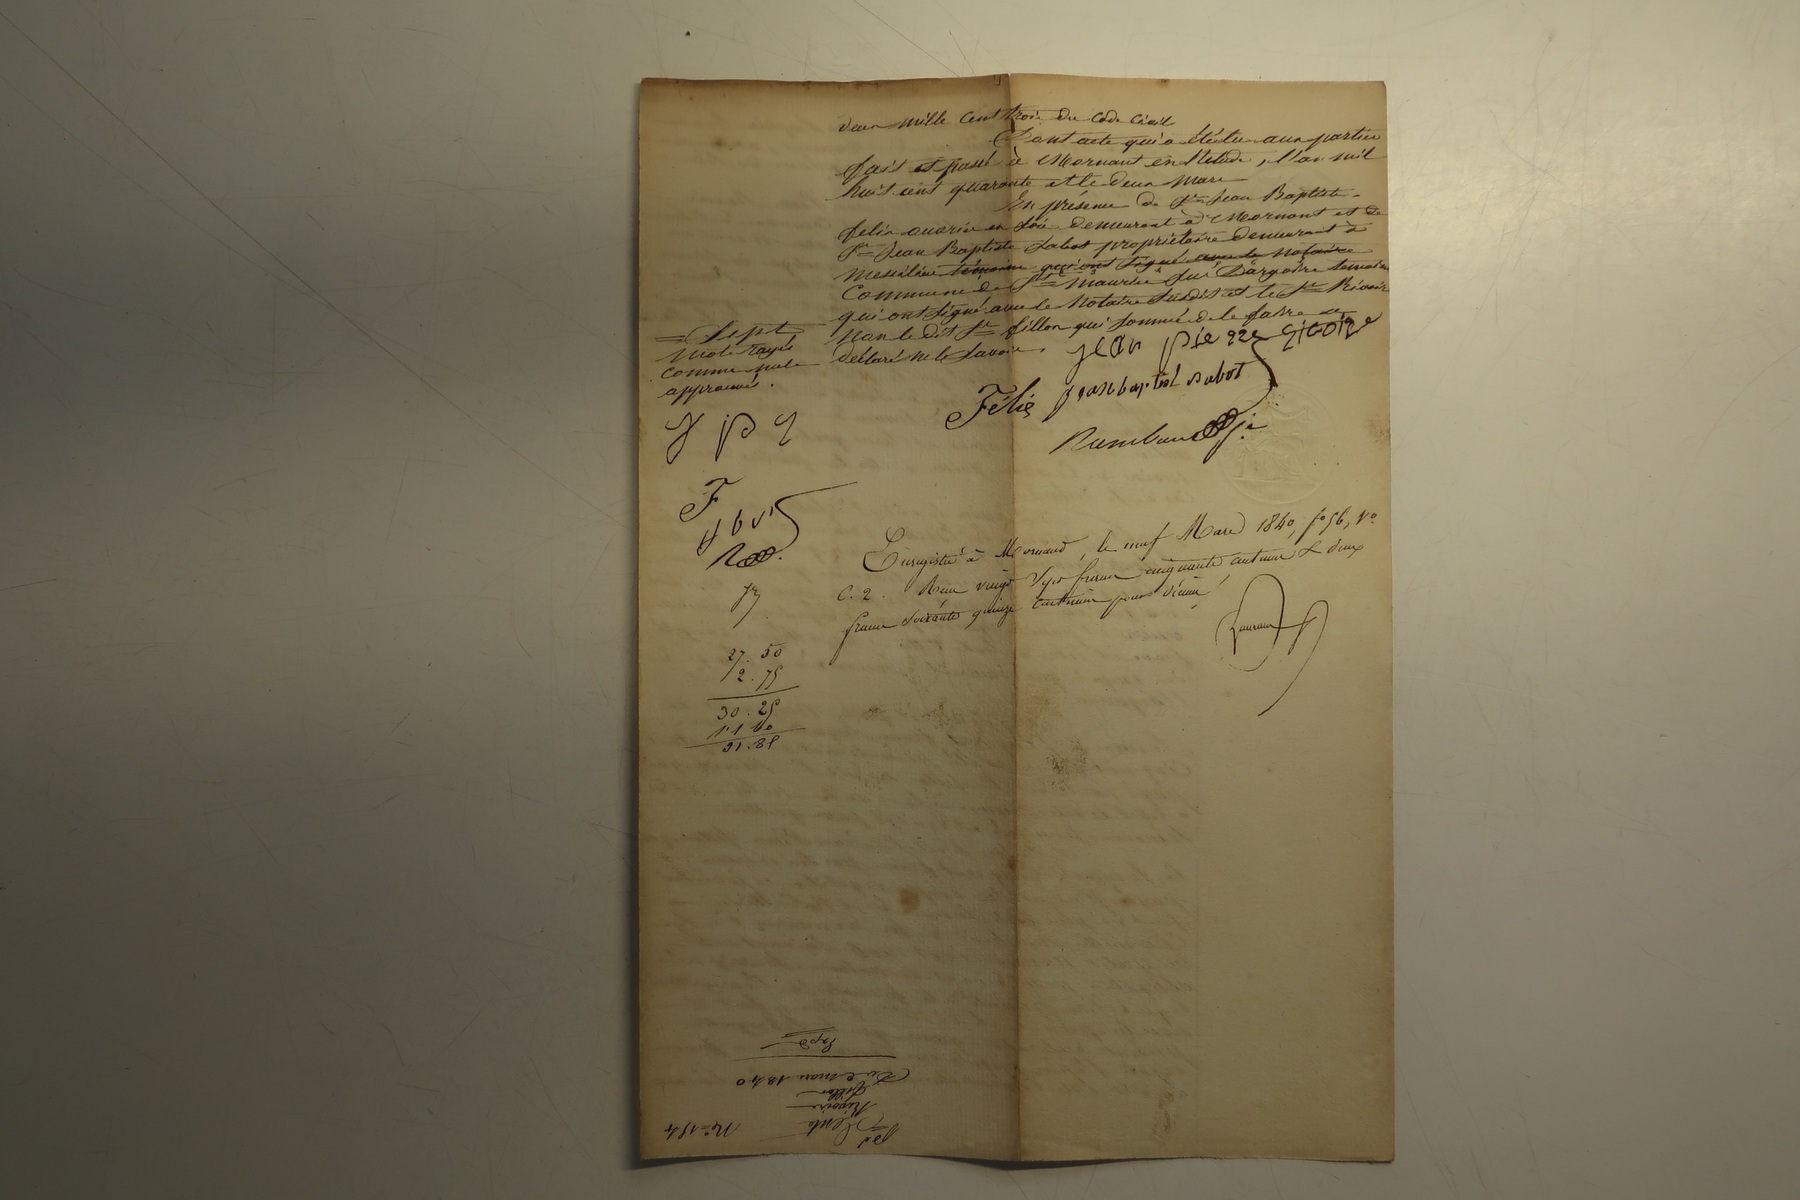 deux mille cent trois du code civil
Dont acte qui a été lu aux parties
fait et passé à Mornant en l'étude, l'an mil
huit cent quarante et le deux mars
En présence de Sr Jean Baptiste
Félix ouvrier en soie demeurant à Mornant et de
Sr Jean Baptiste Sabot propriétaire demeurant à
témoins qui ont signé avec le notaire
Commune de St Maurice sur Dargoire témoins
qui ont signé avec le Notaire susdit et le Sr Rivoire
non le dit Sr Fillon qui sommé de le faire a
déclaré ne le savoir.
= Sept
mots rayés
comme nuls
approuvés.
jean pierre
Félix jeanbaptist sabot
j p
F
j b s
Enregistré à Mornant, le neuf Mars 1840, fo 56, Vo
C. 2. Reçu vingt sept francs cinquante centimes & deux
francs soixante quinze centimes pour décime
27. 50
2. 75
30. 25
1. 60
31. 85
No 154
Vente
Rivoire
Fillon
Du 2 mars 1840
Expd